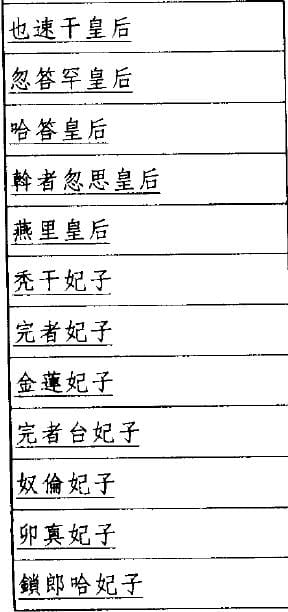 也速干皇后
忽答罕皇后
哈答皇后
斡者忽思皇后
燕里皇后
禿干妃子
完者妃子
金蓮妃子
完者台妃子
奴倫妃子
卯真妃子
鎖郎哈妃子